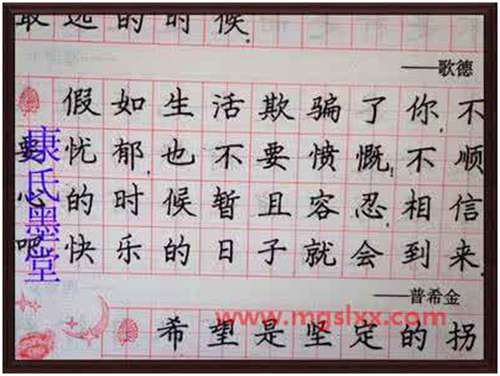 最远的时候.
——歌德
假如生活欺骗了你,不
要忧郁,也不要愤慨,不顺
心的时候暂且容忍,相信
吧,快乐的日子就会到来.
——普希金
希望是坚定的拐
康氏墨堂
www.mgslxx.com